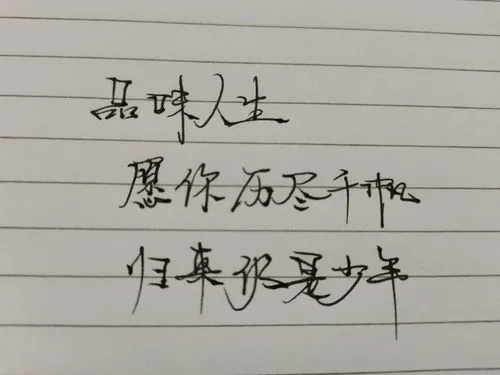 品味人生
愿你历尽千帆
归来仍是少年